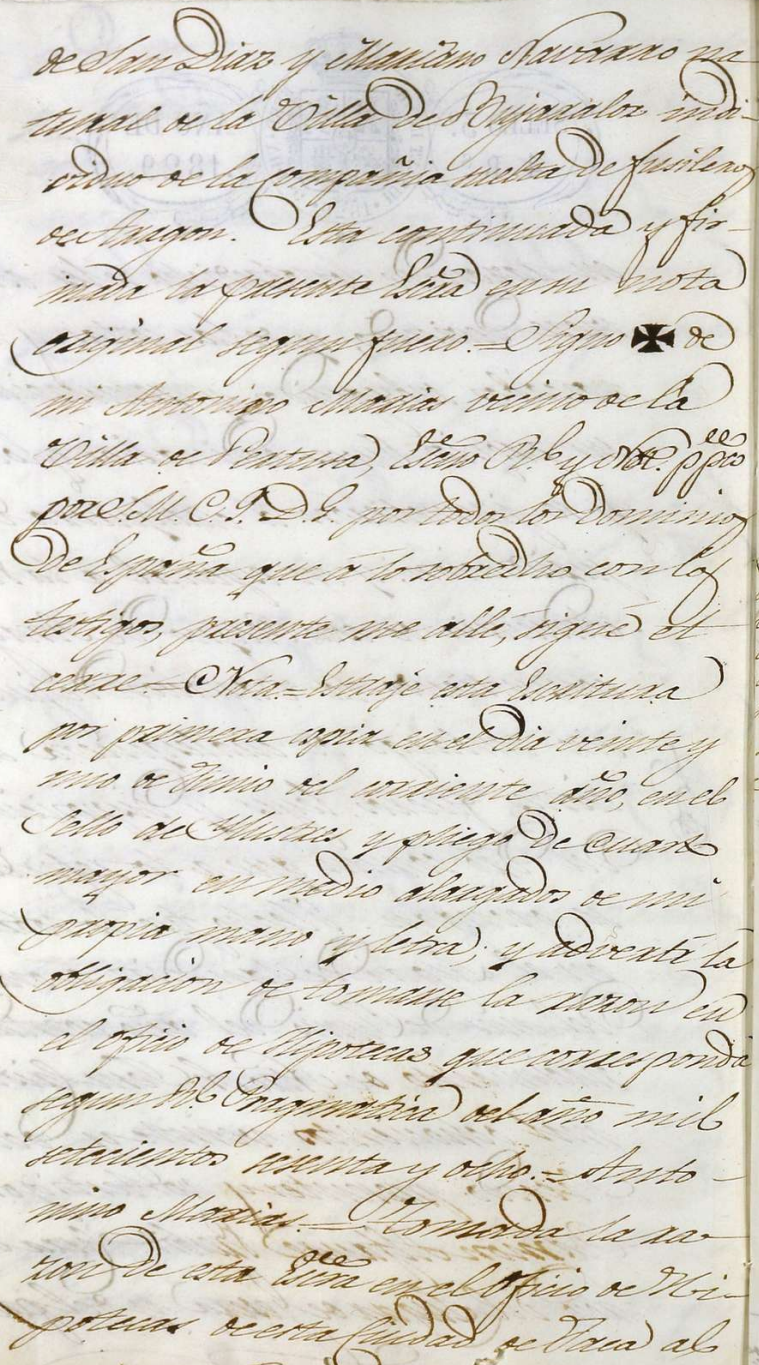 de San Diaz y Mariano Navarro na-
tural de la Villa de Bujaraloz indi-
viduo de la Compañia suelta de fusileros
de Aragon. Esta continuada y fir-
mada la presente Escra en su nota
original segun fuero. = Signo ✠ de
mi Antonino Macias vecino de la
Villa de Escno Rl. y Not. ppco
por S. M. C. Q. D. G. por todos los Dominios
de España que á lo sobredho con los
testigos, presente me allé, signé et
cerre. = Nota = Extraje esta Escritura
por primera copia en el dia veinte y
uno de Junio del corriente año, en el
Sello de Ilustres y pliego de cuarto
mayor en medio alargados de mi
propia mano y letra; y advertí la
obligacion de tomarse la razon en
el oficio de Hipotecas que corresponda
segun Rl. Pragmatica del año mil
setecientos sesenta y ocho. = Anto-
nino Macias. = Tomada la ra-
zon de esta Escra en el Oficio de Hi-
potecas de esta Ciudad de Jaca al